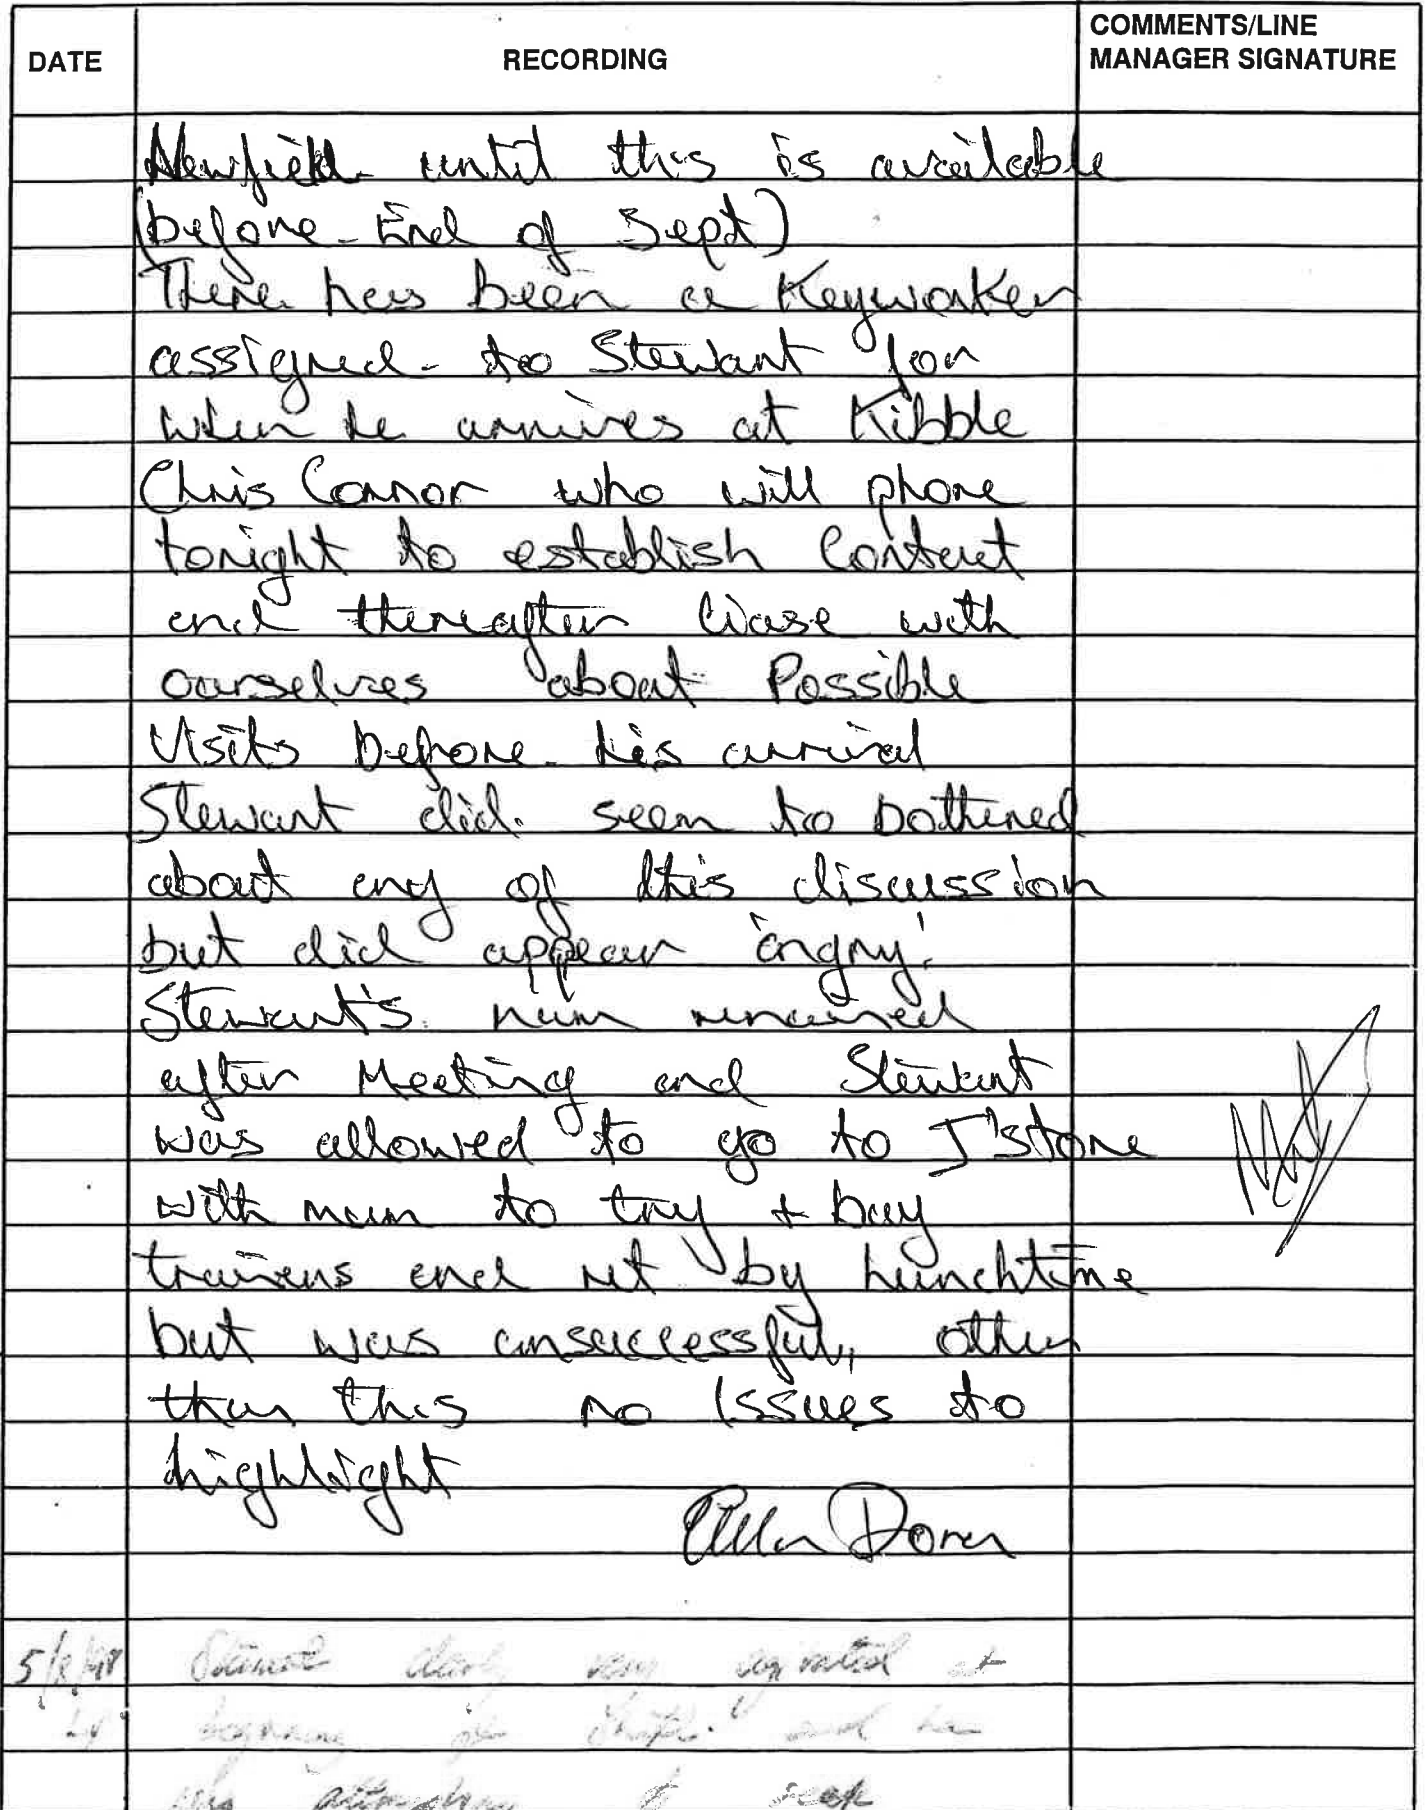 DATE
RECORDING
COMMENTS/LINE
MANAGER SIGNATURE
Newfield until this is available
(before End of Sept)
There has been a Keyworker
assigned to Stewart for
when he arrives at Kibble
Chris Connor who will phone
tonight to establish Contact
and thereafter liase with
ourselves about Possible
Visits before his arrival
Stewart did seem to bothered
about any of this discussion
but did appear 'angry'.
Stewart's mum remained
after Meeting and Stewart
was allowed to go to J'stone
with mum to try + buy
trainers and ret by lunchtime
but was unsuccessful, other
than this no Issues to
highlight
very agitated at
beginning of shift and he
was attempting to seek